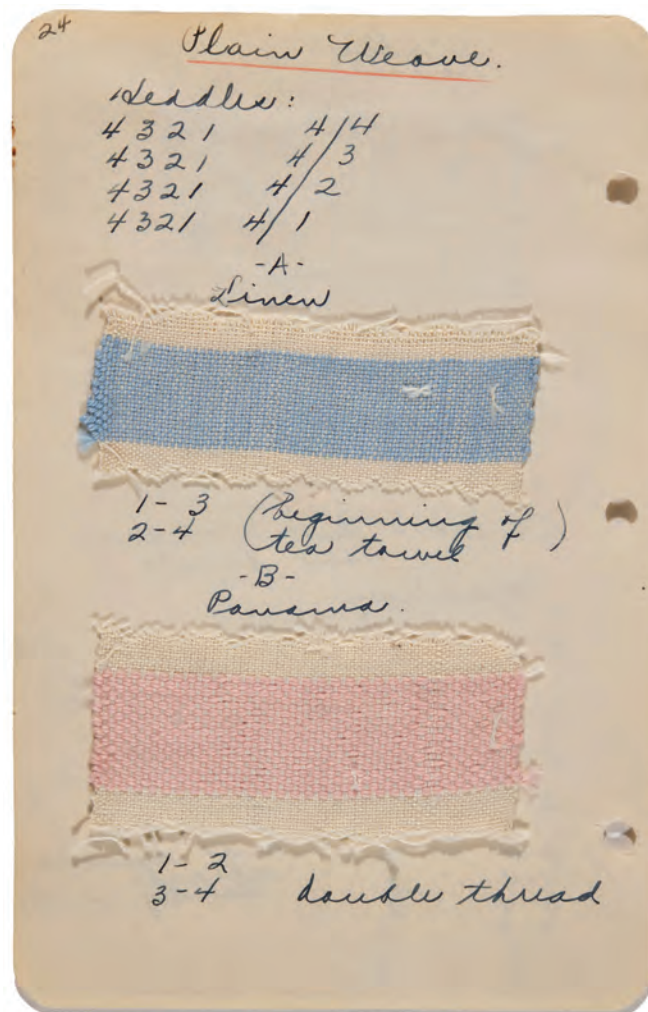 24
Plain Weave.
Heddles:
4 3 2 1 4/4
4 3 2 1 4/3
4 3 2 1 4/2
4 3 2 1 4/1
-A-
Linen
1-3 (beginning of
2-4 tea towel)
-B-
Panama.
1-2
3-4 double thread